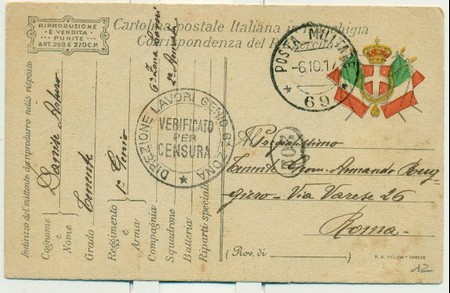 RIPRODUZIONE
E VENDITA
PUNITE
ART. 269 E 270 C.P.
Cartolina postale Italiana in Franchigia
Corrispondenza del R. Esercito
POSTA MILITARE
-6.10.17
* 69 *
Indirizzo del mittente da riprodurre nelle risposte
Cognome
e
Nome
Grado Tenente
Reggimento 1° Genio
o
Arma
Compagnia
Squadrone
Batteria
Riparti speciali
6ª Zona
2ª Armata
DIREZIONE LAVORI GENIO 6ª ZONA
VERIFICATO
PER
CENSURA
Tenente Armando Rug
giero - Via Varese 26
Roma -
(Prov. di )